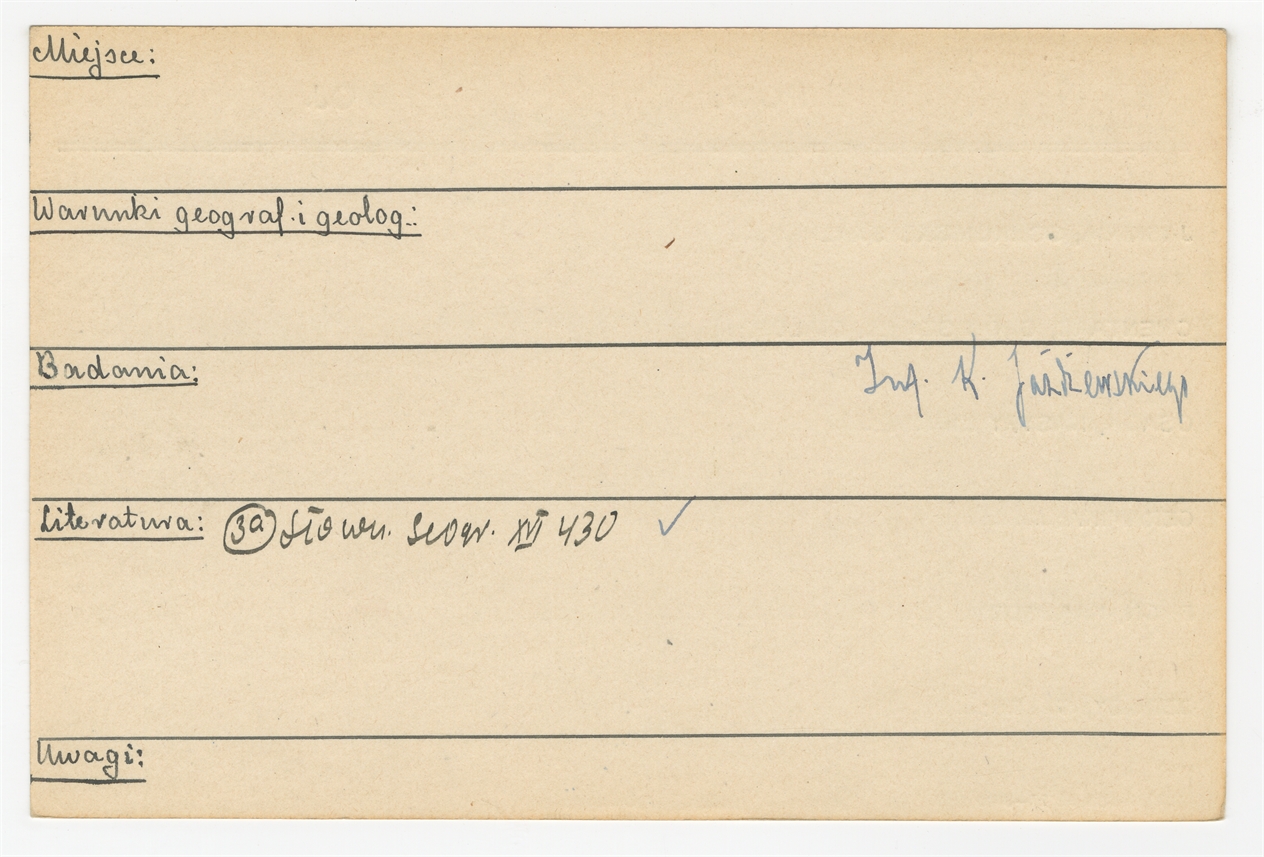 Miejsce:
Warunki geograf. i geolog.:
Badania:
Inf. K. Jażdżewskiego
Literatura: 3a Słown. Geogr. XVI 430 ✓
Uwagi: